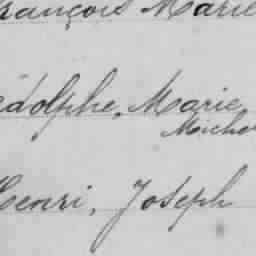 François Marie
Adolphe, Marie
Michel
Henri, Joseph